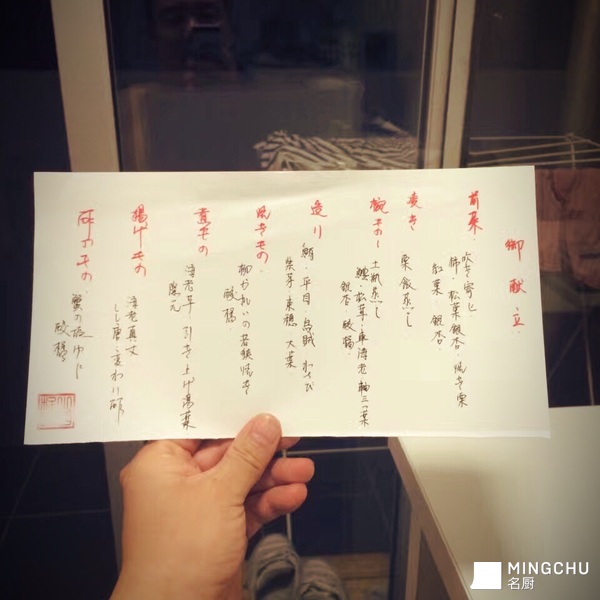 御献立
前菜
吹き寄せ
柿・松葉銀杏・焼き栗
紅葉 銀杏
蒸し
栗飯蒸し
椀もの
土瓶蒸し
鱧・松茸・車海老 軸三つ葉
銀杏 酢橘
造り
鯛・平目・烏賊 わさび
紫芽 東穂 大葉
焼きもの
柳かれいの若狭焼き
酢橘
煮もの
海老芋 引き上げ湯葉
隠元
揚げもの
海老真丈
しし唐・変わり
酢のもの
蟹の
酢橘
MINGCHU
名厨